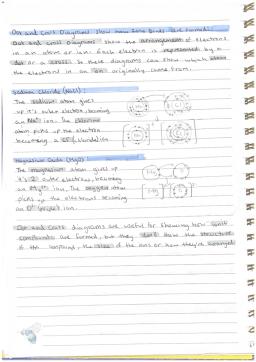 Dot and Cross Diagrams Show how Ionic Bonds are Formed:
Dot and Cross Diagrams show the arrangement of electrons
in an atom or ion. Each electron is represented by a
dot or a cross. So these diagrams can show which atom
the electrons in an ion originally came from.
Sodium Chloride (NaCl):
The sodium atom gives
up it's outer electron, becoming
an Na⁺ ion. The chlorine
atom picks up the electron
becoming a Cl⁻ (chloride) ion
Magnesium Oxide (MgO):
The magnesium atom gives up
it's 2 outer electrons, becoming
an Mg²⁺ ion. The oxygen atom
picks up the electrons becoming
an O²⁻ (oxide) ion.
Dot and Cross diagrams are useful for showing how ionic
compounds are formed, but they don't show the structure
of the compound, the sizes of the ions or how they're arranged